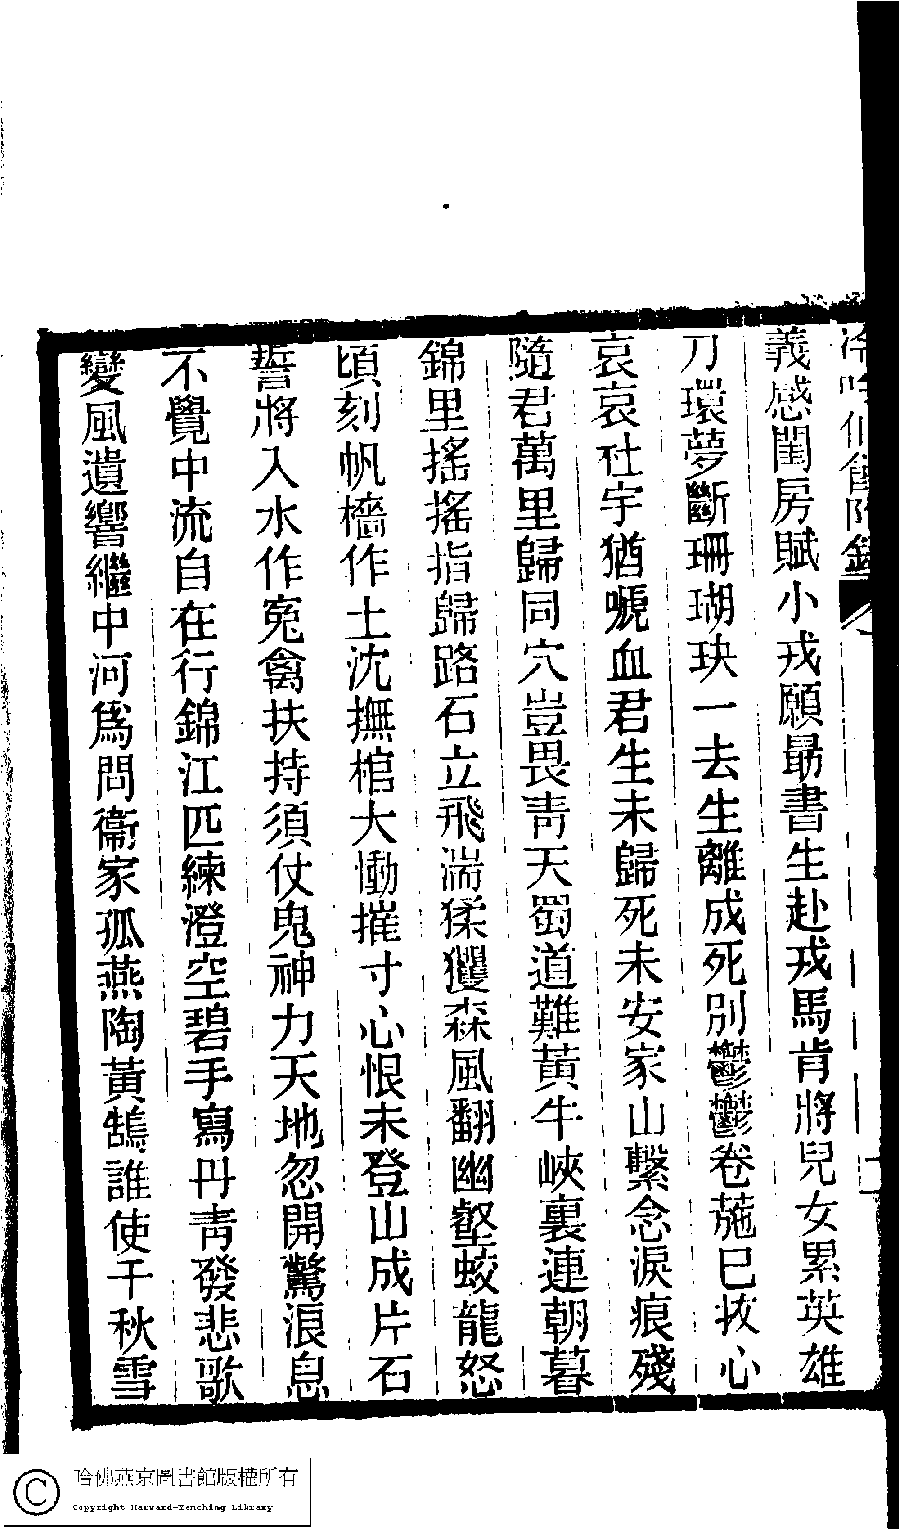 冷吟仙館附錄
義感閨房賦小戎願最書生赴戎馬肯將兒女累英雄
刀環夢斷珊瑚玦一去生離成死別鬱鬱卷葹已抜心
哀哀社宇猶嗁血君生未歸死未安家山繫念淚痕殘
隨君萬里歸同穴豈畏靑天蜀道難黃牛峽裏連朝暮
錦里搖搖指歸路石立飛湍猱玃森風翻幽壑蛟龍怒
頃刻帆檣作土沈撫棺大慟摧寸心恨未登山成片石
誓將入水作寃禽扶持須仗鬼神力天地忽開驚浪息
不覺中流自在行錦江匹練澄空碧手寫丹靑發悲歌
變風遺響繼中河爲問衞家孤燕陶黃鵠誰使千秋雪
哈佛燕京圖書館版權所有
Copyright Harvard-Yenching Library